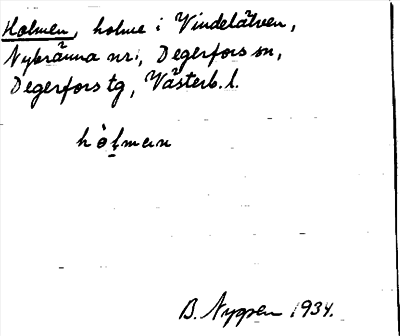 Holmen, holme i Vindelälven,
Nybränna nr 1, Degerfors sn,
Degerfors tg, Västerb. l.
hòl̥man
B. Nygren 1934.